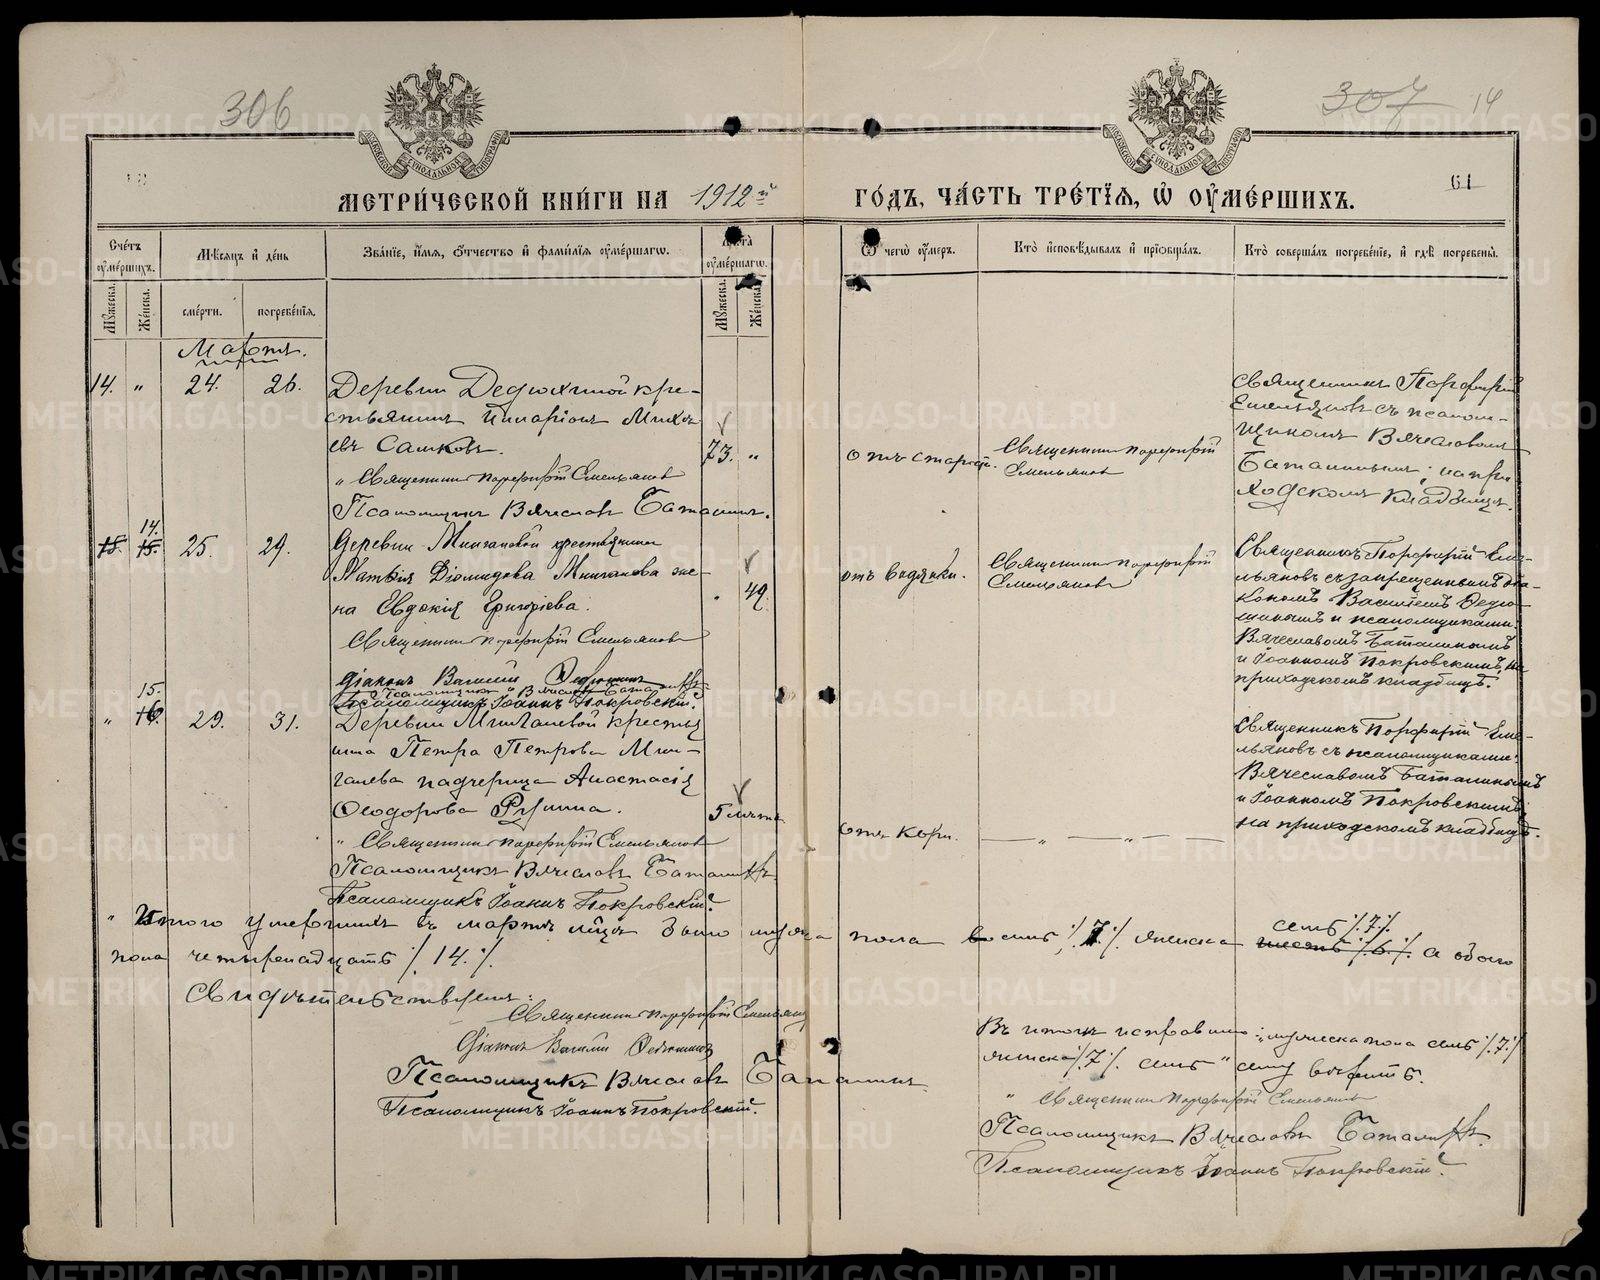 306
307 14
МОСКОВСКОЙ СѴНОДАЛЬНОЙ ТИПОГРАФІИ
МОСКОВСКОЙ СѴНОДАЛЬНОЙ ТИПОГРАФІИ
61
МЕТРИ́ЧЕСКОЙ КНИ́ГИ НА 1912й ГО́ДЪ, ЧА́СТЬ ТРЕ́ТІЯ, Ѡ ОУ҆МЕ́РШИХЪ.
Сче́тъ оумѐршихъ.
Мѣсяцъ и день
Зва́ніе, и҆́мя, ѻ҆́тчество и҆ фами́лія оу҆ме́ршагѡ.
Лѣта оу҆ме́ршагѡ.
Ѿ чегѡ̀ оу҆́меръ.
Кто̀ и҆сповѣ́дывалъ и҆ пріѡбща́лъ.
Кто̀ соверша́лъ погребе́ніе, и҆ гдѣ̀ погребены̀.
Мꙋ́жеска.
Же́нска.
сме́рти.
погребе́нія.
Мꙋ́жеска.
Же́нска.
Мартъ.
14. " 24. 26.
Деревни Дедюхиной кре-
стьянинъ Иларіонъ Михе
евъ Салковъ.
73. "
" Священникъ Порфирій Емельяновъ
Псаломщикъ Вячеславъ Баталинъ.
отъ старости.
Священникъ Порфирій
Емельяновъ
Священникъ Порфирій
Емельяновъ съ псалом-
щикомъ Вячеславомъ
Баталинымъ; на при-
ходскомъ кладбищѣ.
14.
15. 15. 25. 29.
Деревни Мингалевой крестьянина
Матвія Діомидова Мингалева же-
на Евдокія Григоріева.
" 49.
Священникъ Порфирій Емельяновъ
Діаконъ Василій Федюшинъ
Псаломщикъ Вячеславъ Баталинъ
Псаломщикъ Іоаннъ Покровскій.
отъ водянки.
Священникъ Порфирій
Емельяновъ
Священникъ Порфирій Еме-
льяновъ съ запрещеннымъ діа-
кономъ Василіемъ Федю-
шинымъ и псаломщиками:
Вячеславомъ Баталинымъ
и Іоанномъ Покровскимъ, на
приходскомъ кладбищѣ.
15.
" 16. 29. 31.
Деревни Мингалевой крестья
нина Петра Петрова Мин-
галева падчерица Анастасія
Ѳеодорова
5 лѣтъ
" Священникъ Порфирій Емельяновъ
Псаломщикъ Вячеславъ Баталинъ
Псаломщикъ Іоаннъ Покровскій.
отъ кори.
— " — " —
Священникъ Порфирій Еме-
льяновъ съ псаломщиками:
Вячеславомъ Баталинымъ
и Іоанномъ Покровскимъ,
на приходскомъ кладбищѣ.
семь /.7./.
" Итого умершихъ въ мартѣ мѣсяцѣ было мужска пола восемь /.7./. женска шесть /.6./. а обоего
пола четырнадцать /.14./.
Свидѣтельствуемъ:
Священникъ Порфирій Емельяновъ
Діаконъ Василій Федюшинъ
Псаломщикъ Вячеславъ Баталинъ
Псаломщикъ Іоаннъ Покровскій.
Въ итогѣ исправлено: „мужска пола семь /.7./.
женска /.7./. семь" сему вѣрить.
" Священникъ Порфирій Емельяновъ
Псаломщикъ Вячеславъ Баталинъ.
Псаломщикъ Іоаннъ Покровскій.
METRIKI.GASO-URAL.RU